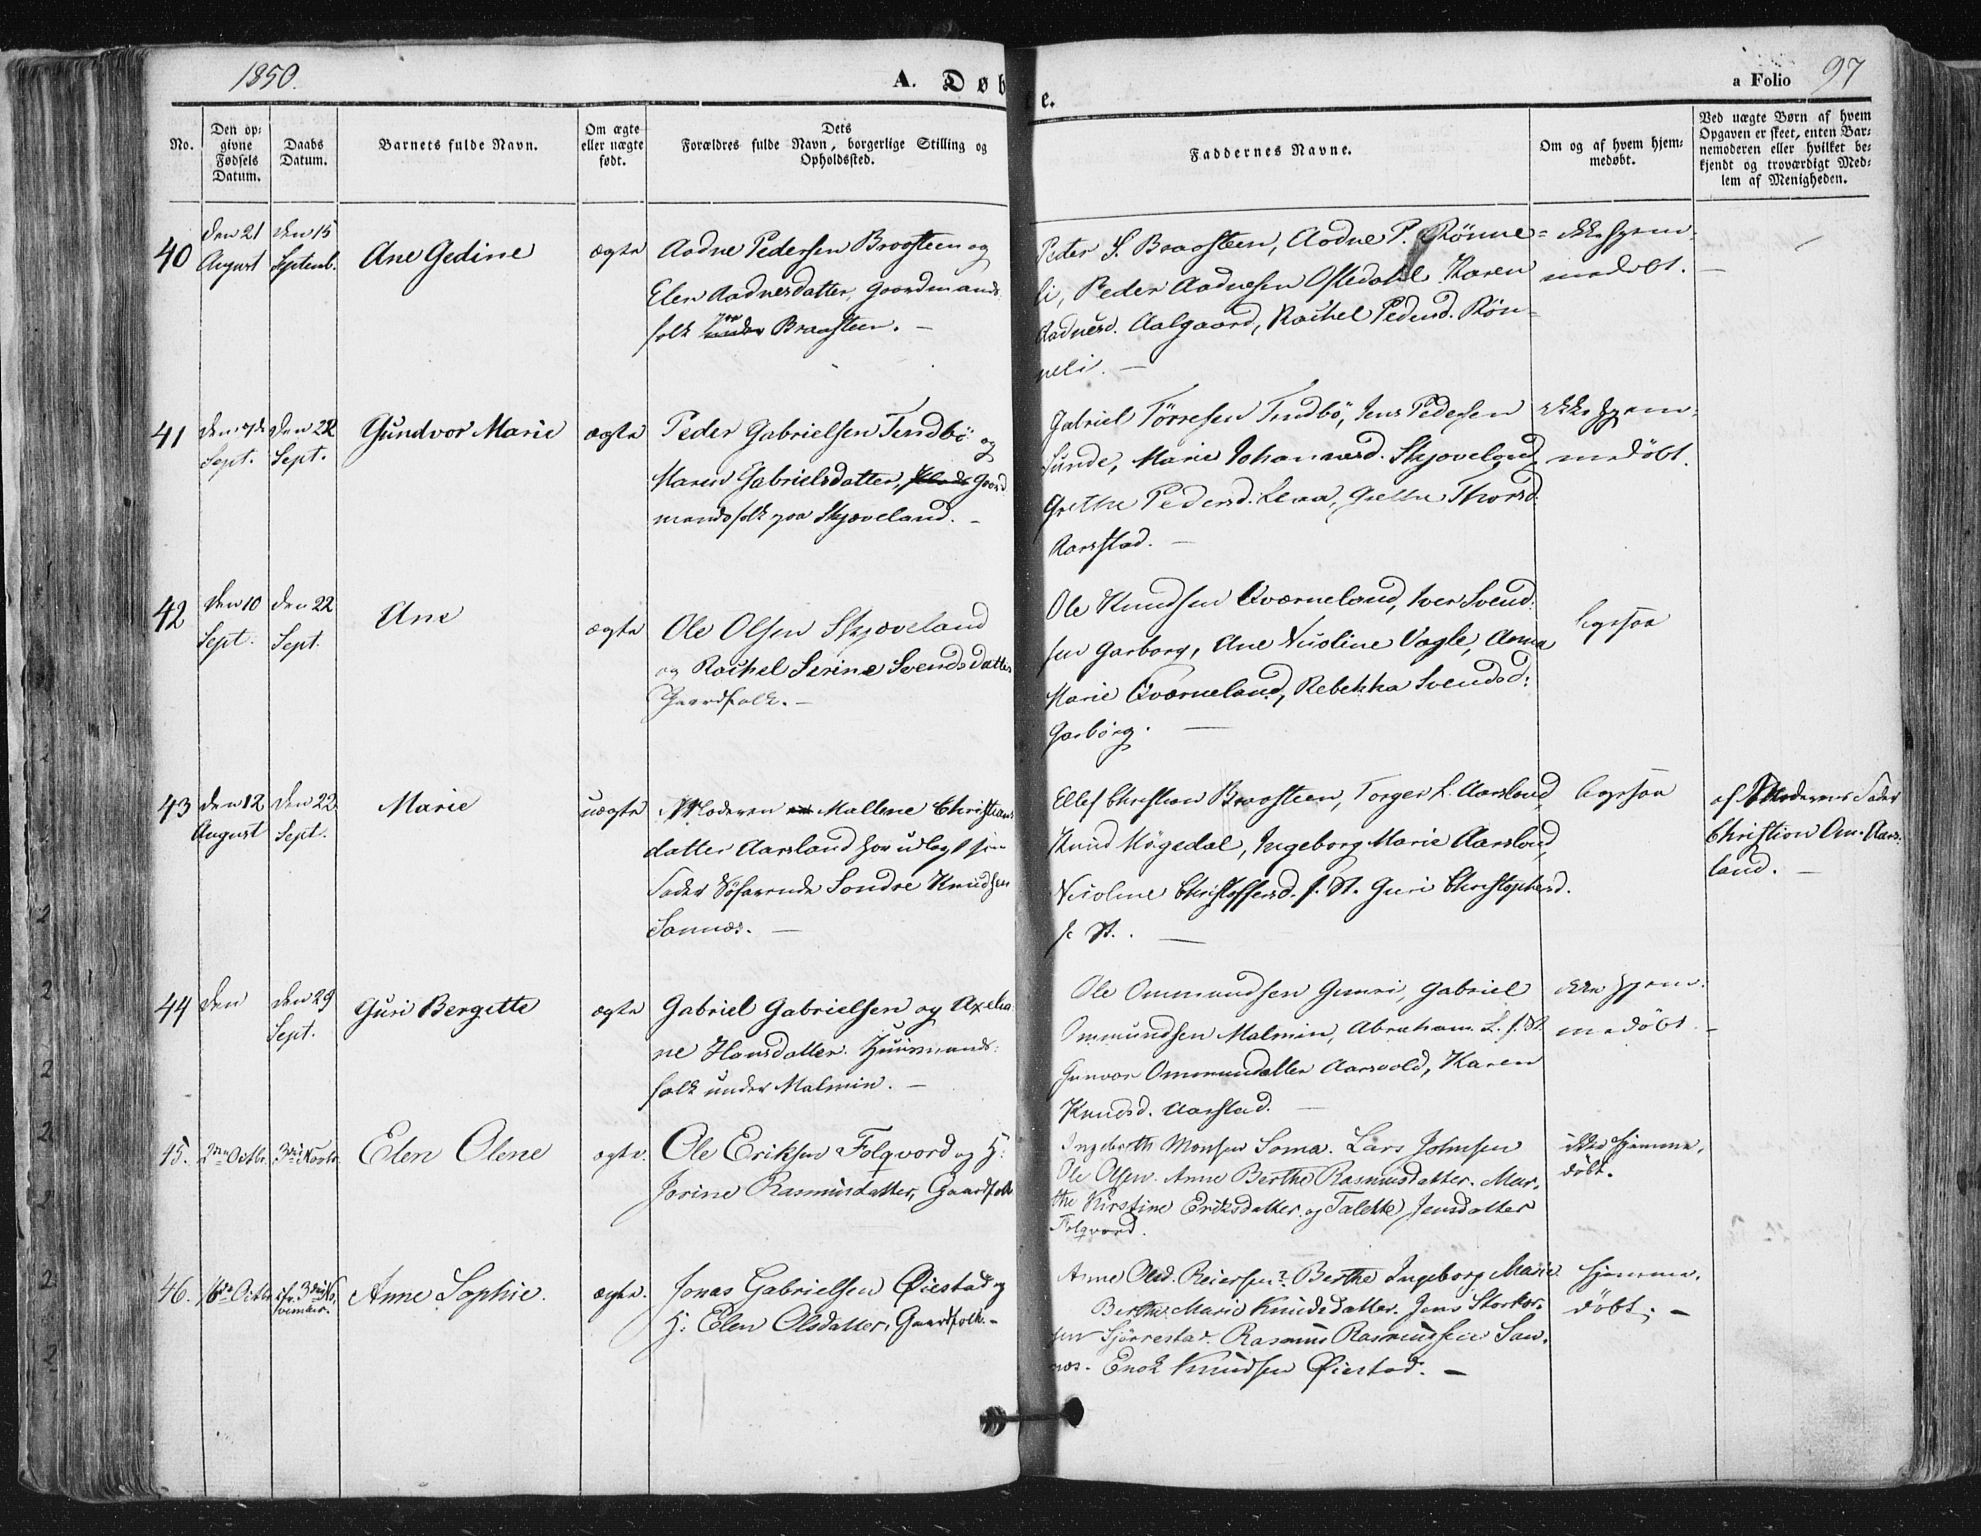 1850.
A. Døbte.
a Folio 97
No.
Den opgivne Fødsels Datum.
Daabs Datum.
Barnets fulde Navn.
Om ægte eller uægte født.
Dets Forældres fulde Navn, borgerlige Stilling og Opholdssted.
Faddernes Navne.
Om og af hvem hjemmedøbt.
Ved uægte Børn af hvem Opgaven er skeet, enten Barnemoderen eller hvilket bekjendt og troværdigt Medlem af Menigheden.
40 den 21 August den 15 Septemb. Ane Gedine ægte
Aadne Pedersen Braasteen og
Elen Aadnesdatter, Gaardmands
folk paa Braasteen. —
Peder S. Braasteen, Aadne P. Rønne=
li, Peder Aadnesen Osledahl Karen
Aadnesd. Aalgaard, Rachel Pedersd. Røn=
neli. —
ikke hjem=
medøbt. —
41 Sept. den 22 Sept. Gundvor Marie ægte
Peder Gabrielsen Tendbø og
Maren Gabrielsdatter, Gaard
mandsfolk paa Skjæveland. —
Gabriel Tørresen Tendbø, Jens Pedersen
Sunde, Marie Johannesd. Skjæveland
Grethe Pedersd. Lena, Grethe Thorsd.
Aarstad. —
ikke hjem=
medøbt.
42 den 10 Sept. den 22 Sept. Ane ægte
Ole Olsen Skjæveland
og Rachel Serine Svendsdatter
Gaardfolk. —
Ole Knudsen Qværneland, Iver Svend=
sen Garborg, Ane Nicoline Vagle, Anna
Marie Qværneland, Rebekka Svendsd:
Garborg. —
ligesaa
43 den 12 August den 22 Sept. Marie uægte
Moderen Mallene Christians
datter Aarsland har udlagt som
Fader Søfarende Sondre Knudsen
Sannæs. —
Ellef Christian Braasteen, Torger L. Aarsland,
Knud Høgedal, Ingeborg Marie Aarsland,
Nicoline Christoffersd. s. St. Guri Christophersd.
s. St. —
ligesaa
af Moderens Fader
Christian Om. Aars=
land. —
44 den den 29 Sept. Guri Bergitte ægte
Gabriel Gabrielsen og Axelia
ne Hansdatter. Huusmands=
folk under Malmin. —
Ole Ommundsen Gumri, Gabriel
Ommundsen Malmin, Abraham L. s. St.
Gunvor Ommundatter Aarsvold, Karen
Knudsd. Aarstad. —
ikke hjem=
medøbt. —
45. 2den Octbr. 3die Novbr. Elen Olene ægte.
Ole Eriksen Folqvord og H:
Jorine Rasmusdatter, Gaardfolk
Ingebreth Monsen Soma. Lars Johnsen
Ole Olsen. Anne Berthe Rasmusdatter. Mar=
the Kirstine Eriksdatter og Talette Jensdatter
Folqvord.
ikke hjemme=
døbt.
46. 16de Octbr. 3die No=
vember. Anne Sophie. ægte.
Jonas Gabrielsen Øiestad og
H: Elen Olsdatter, Gaardfolk. —
Anne Olsd. Reiersen? Berthe Ingeborg Marie
Berthe Marie Knudsdatter. Jens Storkor=
sen Sjørrestad. Rasmus Rasmussen San=
næs. Enok Knudsen Øiestad. —
hjemme=
døbt. —